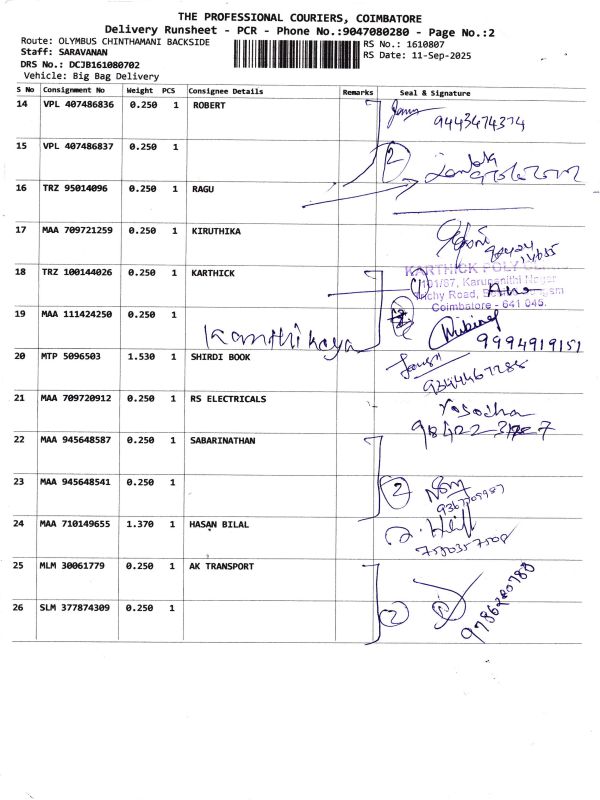 THE PROFESSIONAL COURIERS, COIMBATORE
Delivery Runsheet - PCR - Phone No.:9047080280 - Page No.:2
Route: OLYMBUS CHINTHAMANI BACKSIDE
RS No.: 1610807
Staff: SARAVANAN
RS Date: 11-Sep-2025
DRS No.: DCJB161080702
Vehicle: Big Bag Delivery
S No Consignment No Weight PCS Consignee Details Remarks Seal & Signature
14 VPL 407486836 0.250 1 ROBERT
9443474374
15 VPL 407486837 0.250 1
2
16 TRZ 95014096 0.250 1 RAGU
17 MAA 709721259 0.250 1 KIRUTHIKA
18 TRZ 100144026 0.250 1 KARTHICK
KARTHICK POLY
Trichy Road,
Coimbatore - 641 045.
19 MAA 111424250 0.250 1
9994919151
20 MTP 5096503 1.530 1 SHIRDI BOOK
21 MAA 709720912 0.250 1 RS ELECTRICALS
Yasodha
22 MAA 945648587 0.250 1 SABARINATHAN
23 MAA 945648541 0.250 1
2
24 MAA 710149655 1.370 1 HASAN BILAL
7550357508
25 MLM 30061779 0.250 1 AK TRANSPORT
26 SLM 377874309 0.250 1
2
9786280788